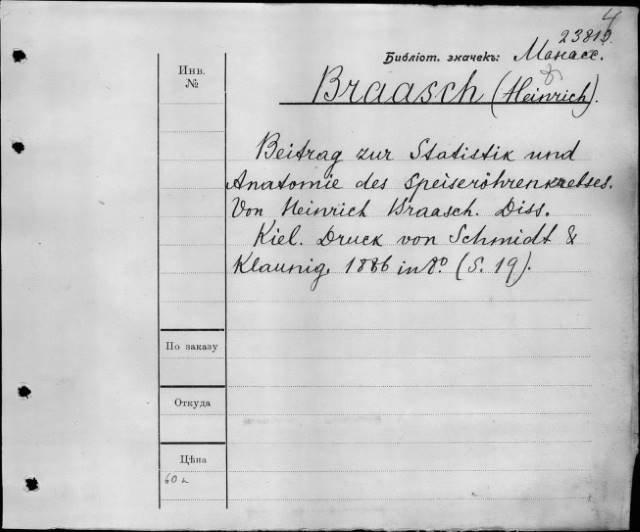 4
23819.
Библіот. значекъ: Манасс.
Инв.
№
Braasch (Heinrich).
Beitrag zur Statistik und
Anatomie des Speiseröhrenkrebses.
Von Heinrich Braasch. Diss.
Kiel. Druck von Schmidt &
Klaunig. 1886 in 8º. (S. 19).
По заказу
Откуда
Цѣна
60 к